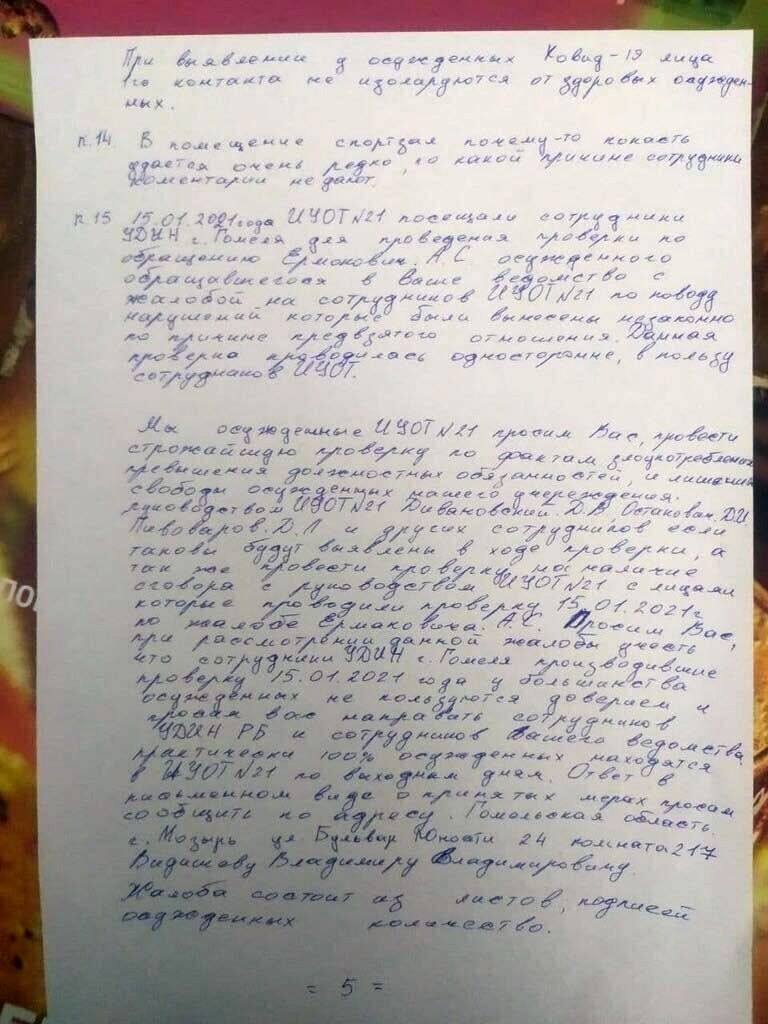 При выявлении у осужденных Ковид-19 лица
1го контакта не изолируются от здоровых осужден-
ных.
п.14 В помещение спортзал почему-то попасть
удается очень редко, по какой причине сотрудники
коментарии не дают.
п.15 15.01.2021 года ИУОТ №21 посещали сотрудники
УДИН г. Гомеля для проведения проверки по
обращению Ермакович. А.С осужденного
обращавшегося в Ваше ведомство с
жалобой на сотрудников ИУОТ №21 по поводу
нарушений которые были вынесены незаконно
по причине предвзятого отношения. Данная
проверка проводилась односторонне, в пользу
сотрудников ИУОТ.
Мы осужденные ИУОТ №21 просим Вас, провести
строжайшую проверку по фактам злоупотребления
превышения должностных обязанностей, и лишения
свободы осужденных нашего учереждения.
руководством ИУОТ №21 Дивановский. Д.В Остакович. Д.И.
Пивоваров. Д.Л и других сотрудников если
таковы будут выявлены в ходе проверки, а
так же провести проверку на наличие
сговора с руководством ИУОТ №21 с лицами
которые проводили проверку 15.01.2021г
по жалобе Ермаковича. А.С. Просим Вас,
при рассмотрении данной жалобы учесть
что сотрудники УДИН г. Гомеля производившие
проверку 15.01.2021 года у большинства
осужденных не пользуются доверием и
просим вас направать сотрудников
УДИН РБ и сотрудников Вашего ведомства
практически 100% осужденных находятся
в ИУОТ №21 по выходным дням. Ответ в
письменном виде о принятых мерах просим
сообщить по адресу. Гомольская область.
г. Мозырь ул. Бульвар Юности 24 комната 217
Видишову Владимиру Владимировичу.
Жалоба состоит из листов, подписей
осужденных количество.
= 5 =